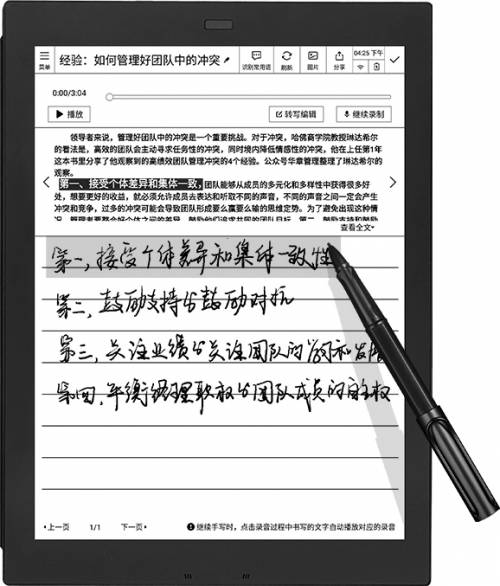 菜单
经验：如何管理好团队中的冲突
识别常用语
刷新
图片
分享
04:25 下午
0:00/3:04
播放
转写编辑
继续录制
领导者来说，管理好团队中的冲突是一个重要挑战。对于冲突，哈佛商学院教授琳达希尔
的看法是，高效的团队会主动寻求任务性的冲突，同时对内降低情感性的冲突，他在上任第1年
这本书里分享了他观察到的高绩效团队管理冲突的4个经验。公众号华章管理整理了琳达希尔的
观察。
第一、接受个体差异和集体一致，团队能够从成员的多元化和多样性中获得很多好
处，想要更好的收益，就必须允许成员去表达和听取不同的声音，不同的声音之间一定会产生
冲突和竞争，过多的冲突可能会导致团队形成要么赢要么输的思维定势。为了避免出现这种情
查看全文
第一，接受个体差异和集体一致性
第二，鼓励支持与鼓励对抗
第三，关注业绩与关注团队的学习和发展
第四，平衡经理职权与团队成员的自主权
上一页
1/1
下一页
继续手写时，点击录音过程中书写的文字自动播放对应的录音